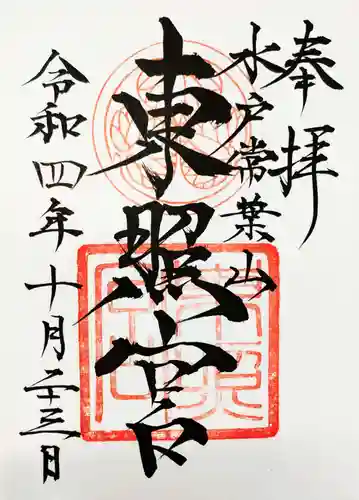 奉拝
水戸常葉山
東照宮
令和四年十月二十三日